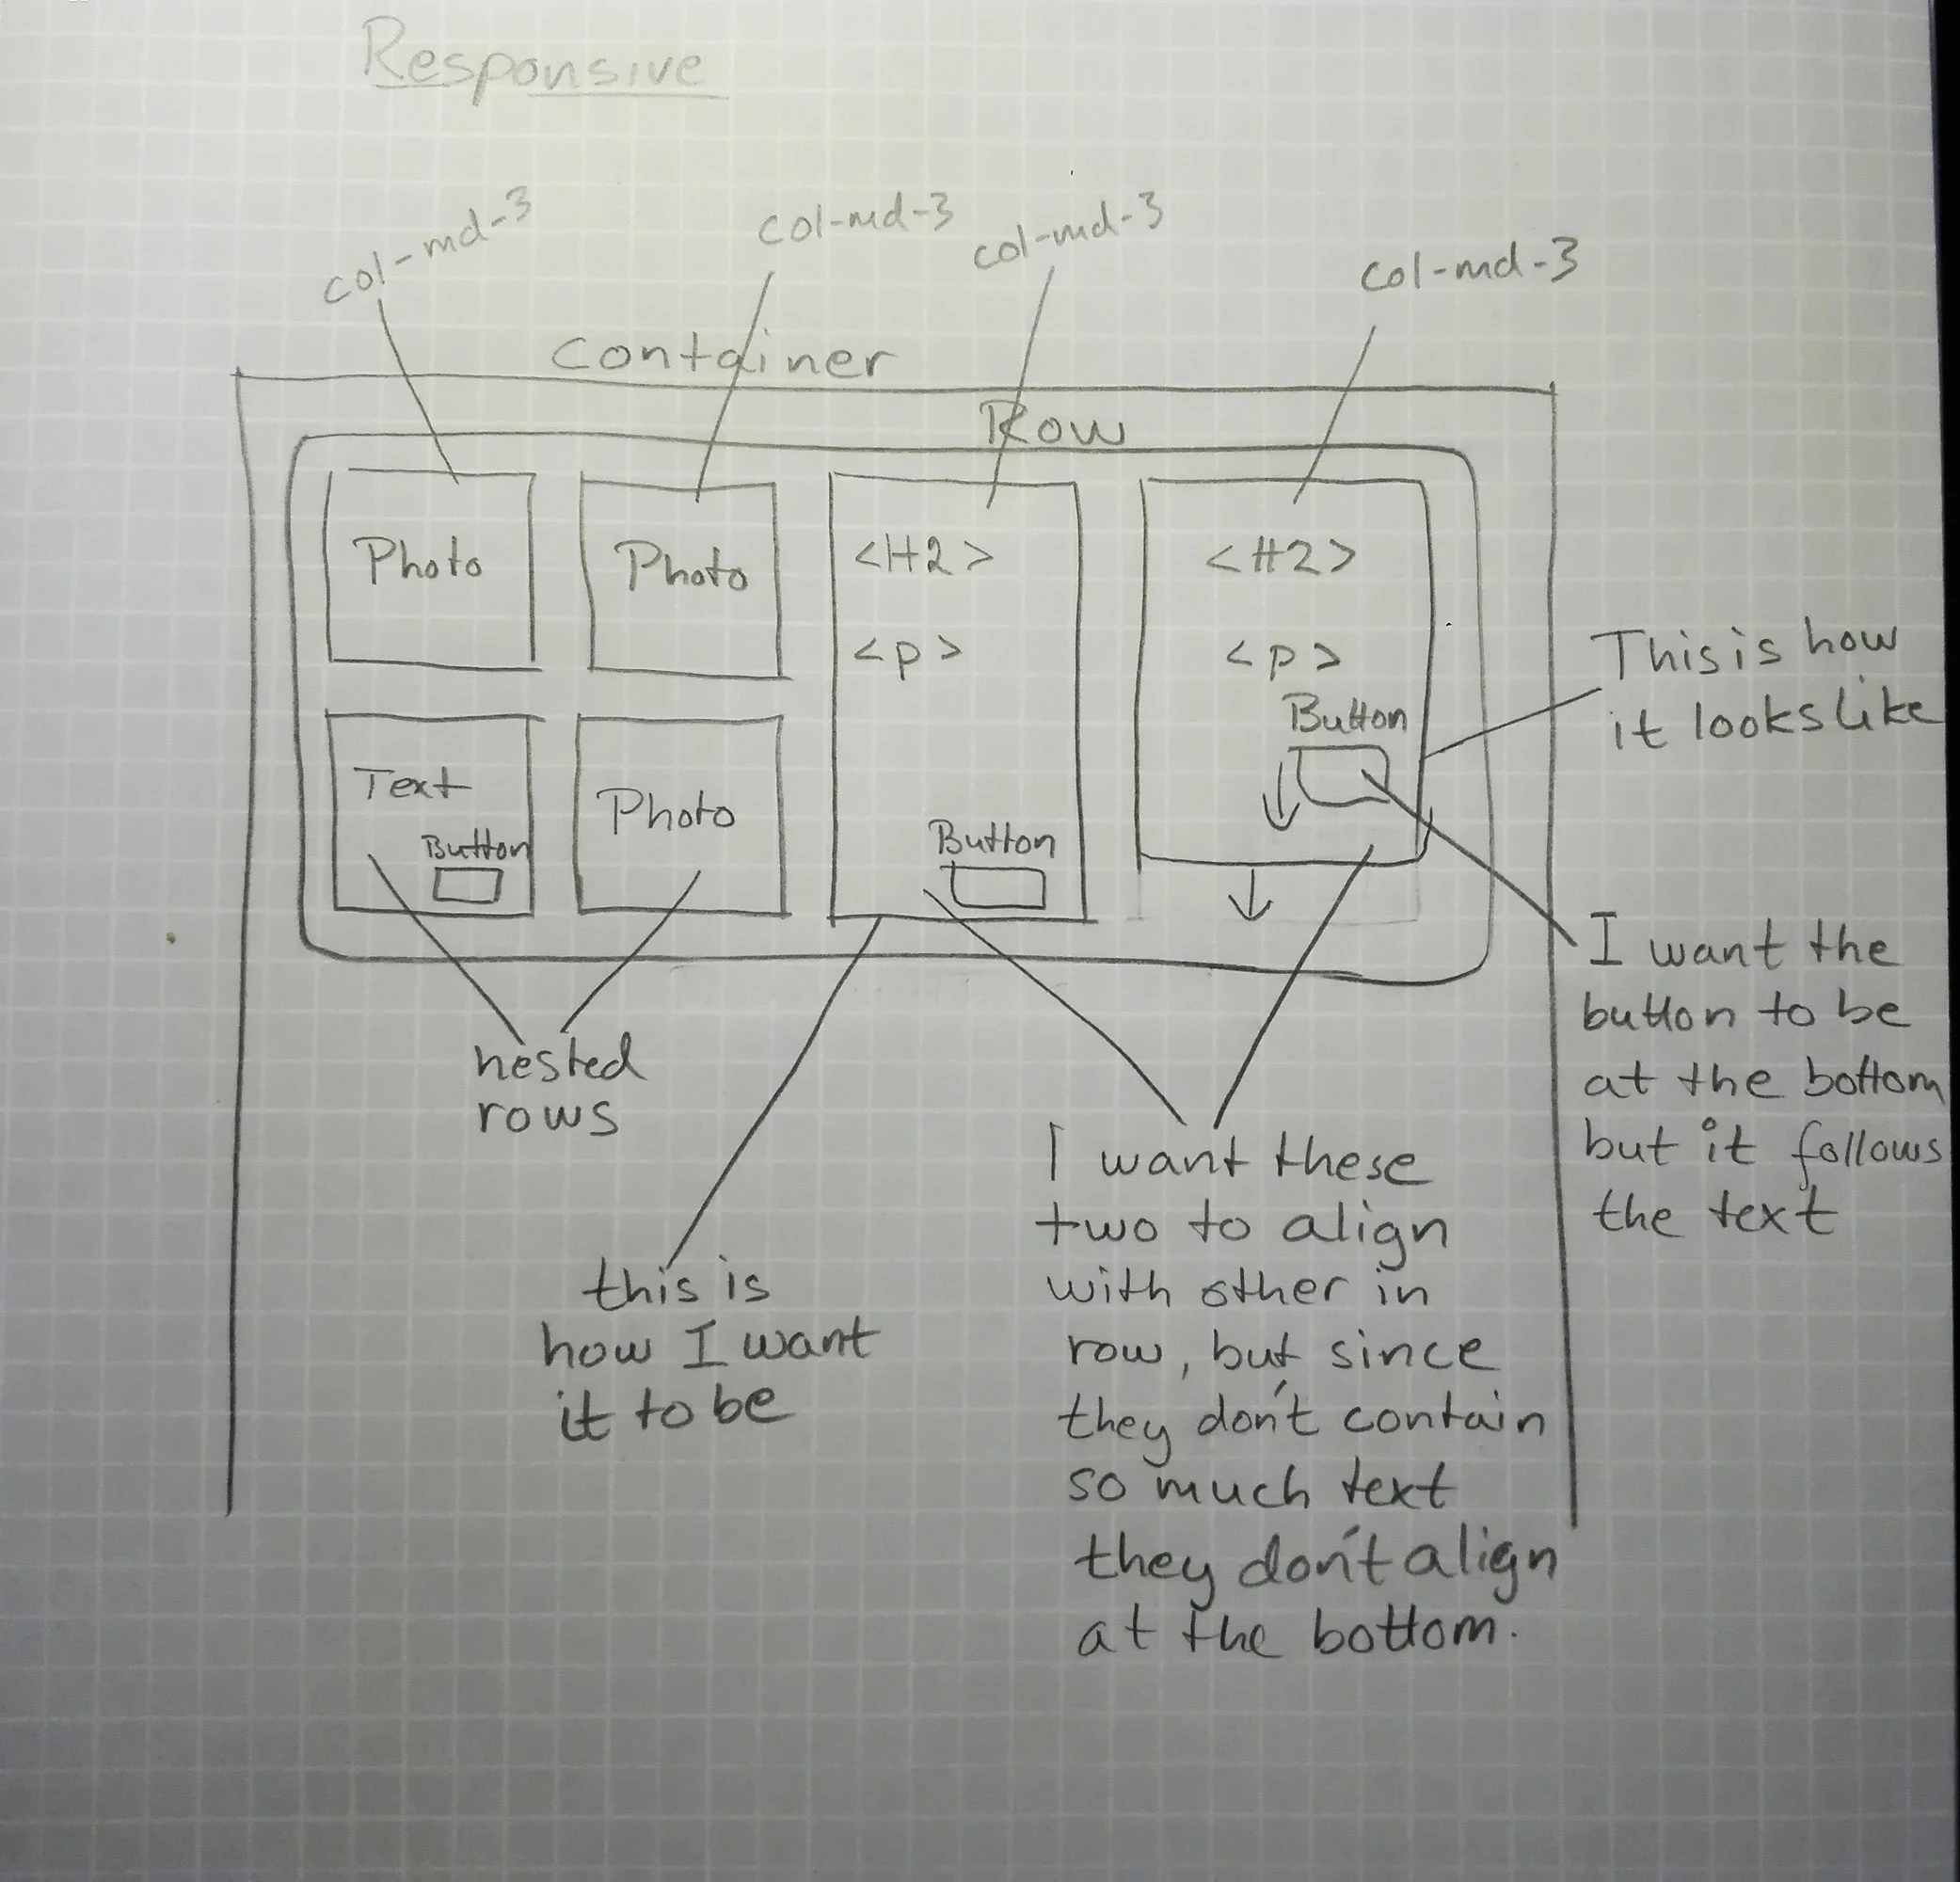 Responsive
col-md-3
col-md-3
col-md-3
col-md-3
Container
Row
Photo
Photo
<H2>
<p>
<H2>
<p>
Button
Text
Button
Photo
Button
This is how
it looks like
I want the
button to be
at the bottom
but it follows
the text
nested
rows
this is
how I want
it to be
I want these
two to align
with other in
row, but since
they don't contain
so much text
they don't align
at the bottom.